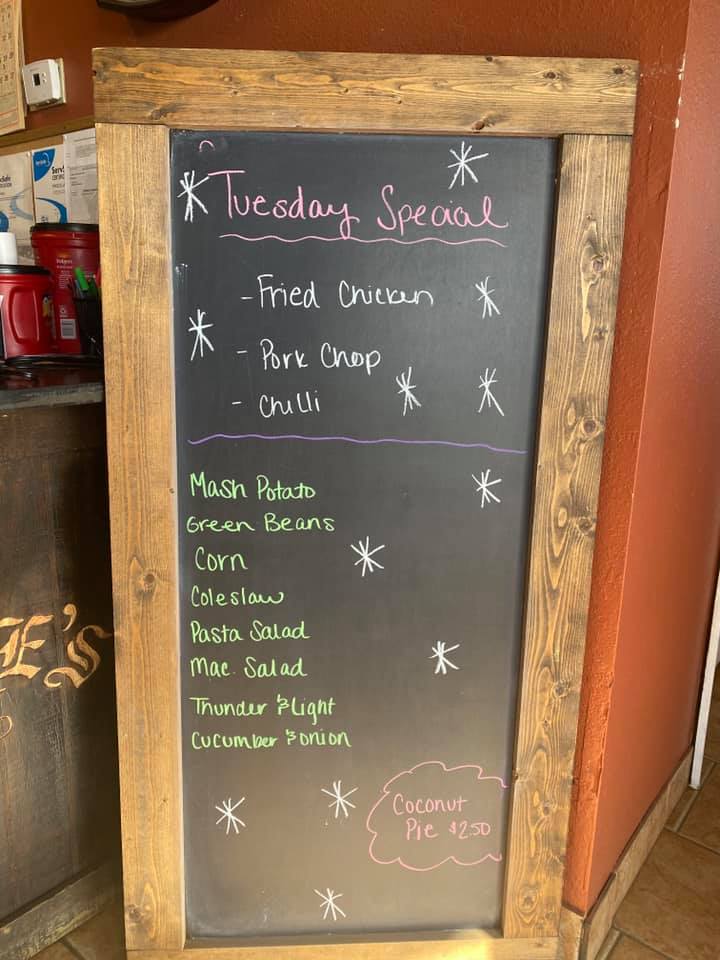 Tuesday Special
- Fried Chicken
- Pork Chop
- Chilli
Mash Potato
Green Beans
Corn
Coleslaw
Pasta Salad
Mac. Salad
Thunder & Light
Cucumber & onion
Coconut
Pie $2.50
E's